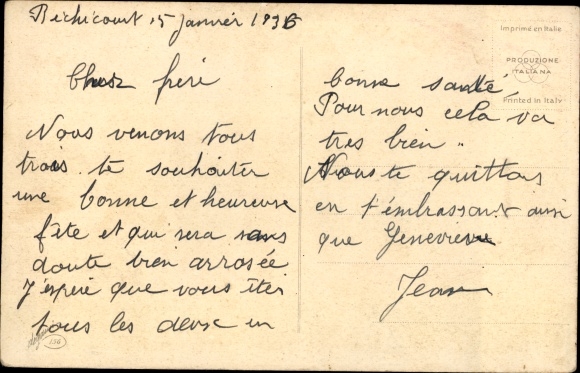 Béchicourt 15 Janvier 1936
Cher frère
Nous venons tous
trois te souhaiter
une bonne et heureuse
fête et qui sera sans
doute bien arrosée
J'espère que vous êtes
tous les deux en
bonne santé,
Pour nous cela va
tres bien
Nous te quittons
en t'embrassant ainsi
que Geneviève
Jean
Imprimé en Italie
PRODUZIONE
ITALIANA
Printed in Italy
136